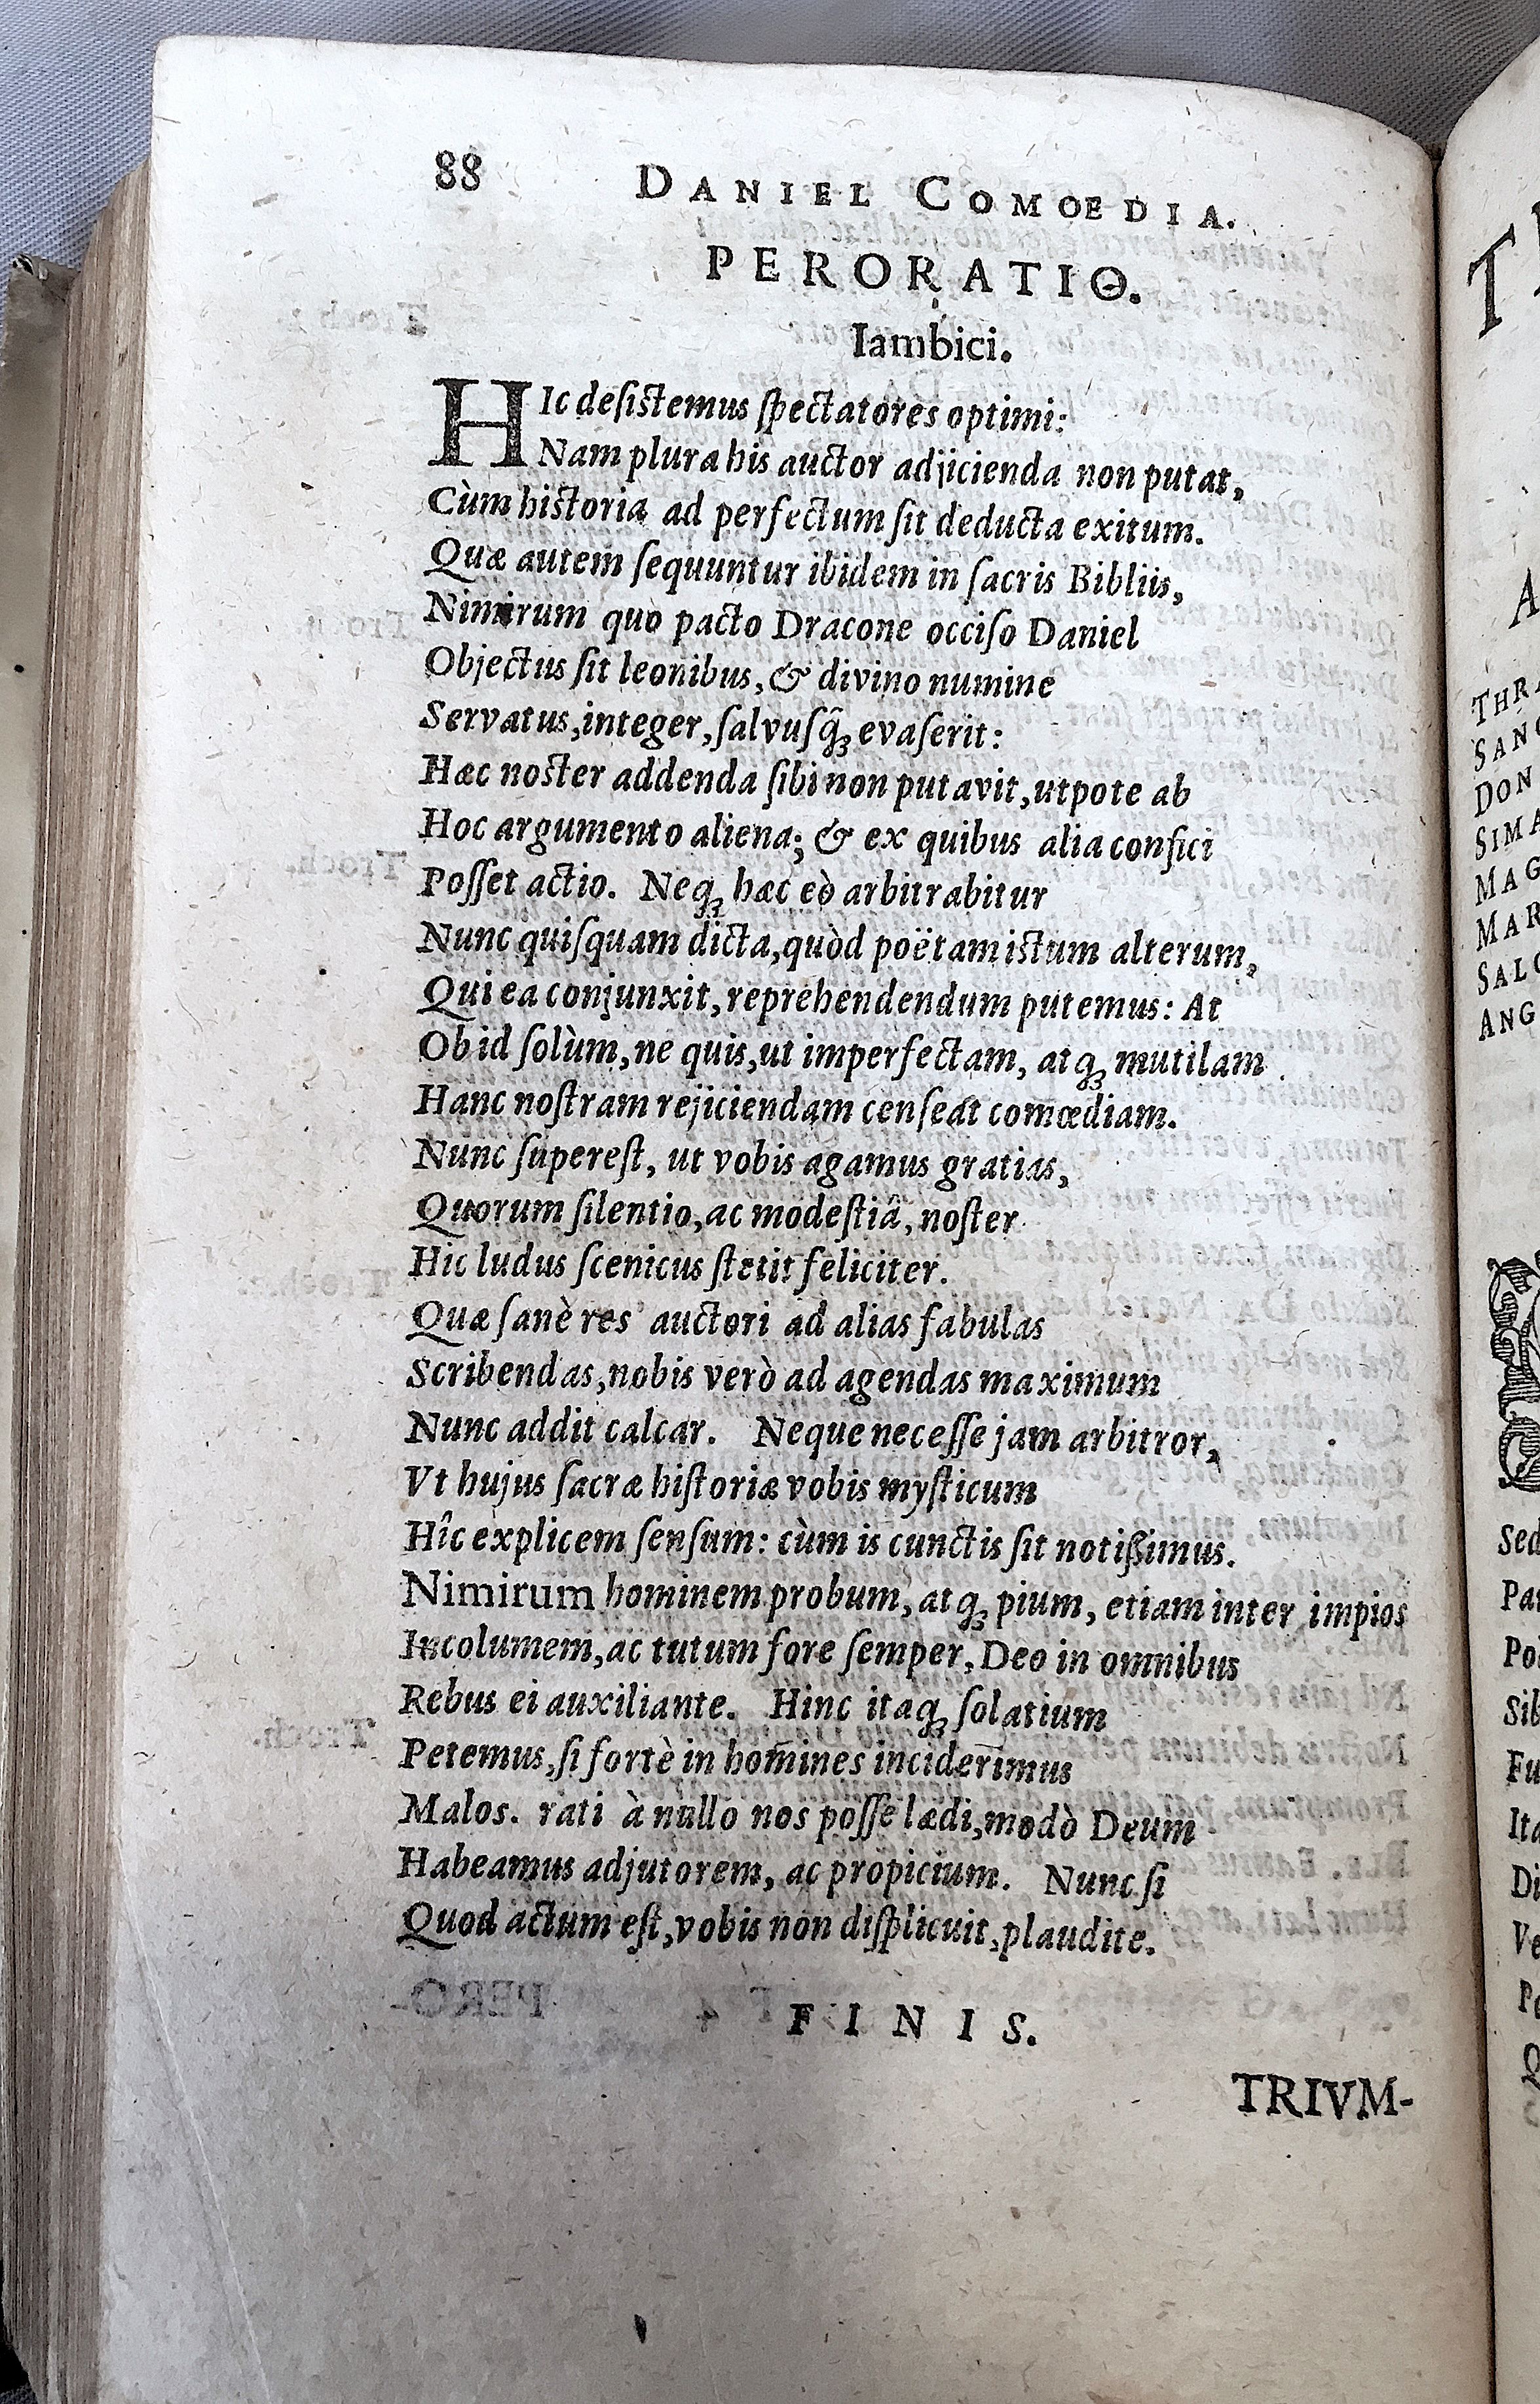 88 DANIEL COMOEDIA.
PERORATIO.
Iambici.
HIc desistemus spectatores optimi:
Nam plura his auctor adjicienda non putat,
Cùm historia ad perfectum sit deducta exitum.
Quæ autem sequuntur ibidem in sacris Bibliis,
Nimirum quo pacto Dracone occiso Daniel
Objectus sit leonibus, & divino numine
Servatus, integer, salvusq́; evaserit:
Hæc noster addenda sibi non putavit, utpote ab
Hoc argumento aliena; & ex quibus alia confici
Posset actio. Neq; hæc eò arbitrabitur
Nunc quisquam dicta, quòd poëtam istum alterum,
Qui ea conjunxit, reprehendendum putemus: At
Ob id solùm, ne quis, ut imperfectam, atq; mutilam
Hanc nostram rejiciendam censeat comœdiam.
Nunc superest, ut vobis agamus gratias,
Quorum silentio, ac modestiâ, noster
Hic ludus scenicus stetit feliciter.
Quæ sanè res auctori ad alias fabulas
Scribendas, nobis verò ad agendas maximum
Nunc addit calcar. Neque necesse jam arbitror,
Vt hujus sacræ historiæ vobis mysticum
Hîc explicem sensum: cùm is cunctis sit notißimus.
Nimirum hominem probum, atq; pium, etiam inter impios
Incolumem, ac tutum fore semper, Deo in omnibus
Rebus ei auxiliante. Hinc itaq; solatium
Petemus, si fortè in homines inciderimus
Malos. rati à nullo nos posse lædi, modò Deum
Habeamus adjutorem, ac propicium. Nunc si
Quod actum est, vobis non displicuit, plaudite.
FINIS.
TRIVM-